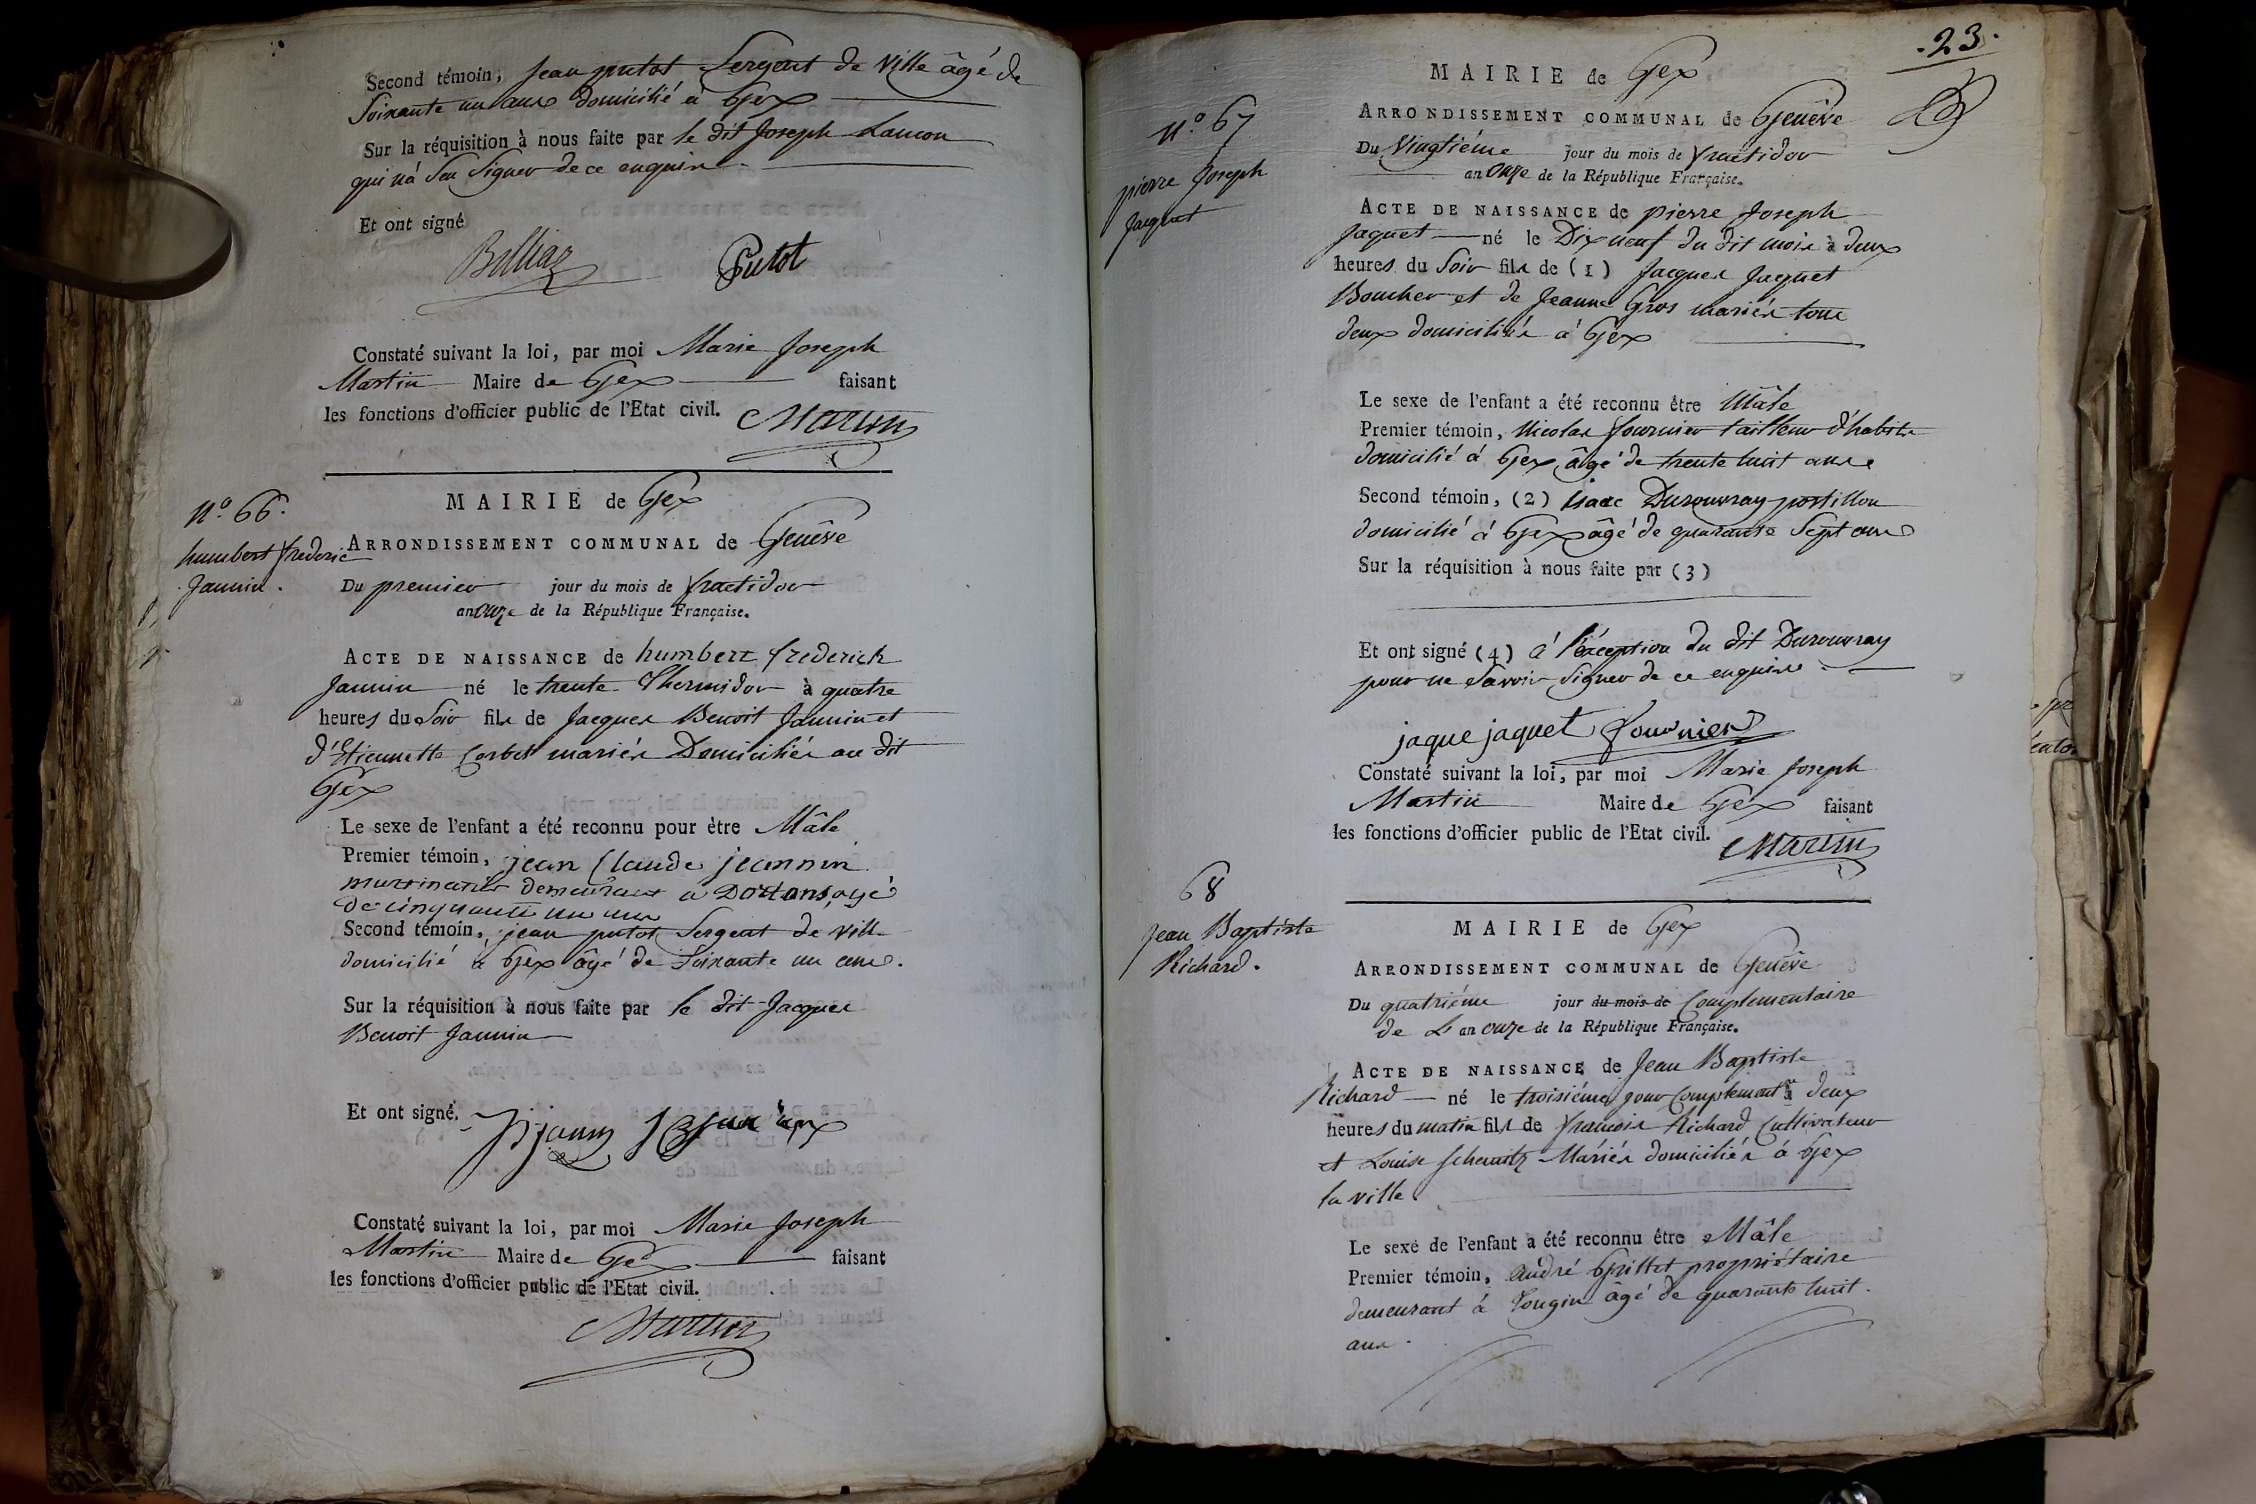 Second témoin, jean putot Sergent de Ville âgé de
Soixante un ans domicilié à Gex
Sur la réquisition à nous faite par le dit Joseph Lancon
qui n'a Seu Signer de ce enquir
Et ont signé
Billiaz Putot
Constaté suivant la loi, par moi Marie Joseph
Martin Maire de Gex faisant
les fonctions d'officier public de l'Etat civil. Martin
N.º 66.
humbert frederic
Jannin.
MAIRIE de Gex
ARRONDISSEMENT COMMUNAL de Genêve
Du premier jour du mois de fructidor
an onze de la République Française.
ACTE DE NAISSANCE de humbert frederick
Jannin né le trente Thermidor à quatre
heures du Soir fils de Jacques Benoit Jannin et
d'Etiennette Corbet mariés Domiciliés au dit
Gex
Le sexe de l'enfant a été reconnu pour être Mâle
Premier témoin, jean Claude jeannin
demeurant a Dortans, agé
de cinquante un ans
Second témoin, jean putot Sergent de ville
domicilié à Gex âgé de Soixante un ans.
Sur la réquisition à nous faite par le dit Jacques
Benoit Jannin
Et ont signé.
Constaté suivant la loi, par moi Marie Joseph
Martin Maire de Gex faisant
les fonctions d'officier public de l'Etat civil.
Martin
.23.
N.º 67
pierre Joseph
Jaquet
MAIRIE de Gex
ARRONDISSEMENT COMMUNAL de Genêve
Du Vingtiéme jour du mois de fructidor
an Onze de la République Française.
ACTE DE NAISSANCE de pierre Joseph
Jaquet né le Dix neuf du dit mois à deux
heures du Soir fils de (1) Jacques Jaquet
Boucher et de Jeanne Gros mariés tous
deux domiciliés à Gex
Le sexe de l'enfant a été reconnu être Mâle
Premier témoin, Nicolas fournier tailleur d'habits
domicilié à Gex âgé de trente huit ans
Second témoin, (2) isaac Durouvray postillon
domicilié à Gex âgé de quarante Sept ans
Sur la réquisition à nous faite par (3)
Et ont signé (4) à l'éxception du dit Durouvray
pour ne Savoir Signer de ce enquire
jaque jaquet fournier
Constaté suivant la loi, par moi Marie Joseph
Martin Maire de Gex faisant
les fonctions d'officier public de l'Etat civil. Martin
68
Jean Baptiste
Richard.
MAIRIE de Gex
ARRONDISSEMENT COMMUNAL de Genêve
Du quatriéme jour du mois de Complementaire
de L'an onze de la République Française.
ACTE DE NAISSANCE de Jean Baptiste
Richard né le troisiéme jour Complement.re à deux
heures du matin fils de françois Richard Cultivateur
et Louise Schwartz Mariés domiciliés à Gex
la ville
Le sexe de l'enfant a été reconnu être Mâle
Premier témoin, andré Grillet propriétaire
demeurant à Tougin âgé de quarante huit
ans.